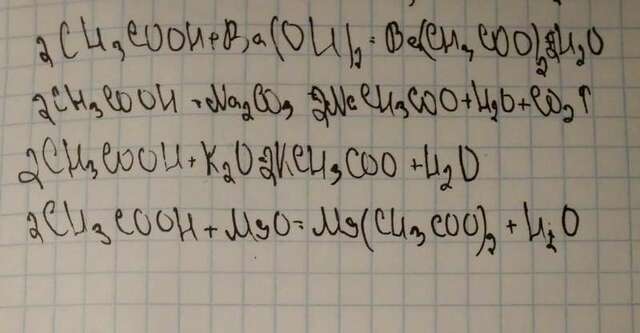 2CH₃COOH+Ba(OH)₂=Ba(CH₃COO)₂+2H₂O
2CH₃COOH+Na₂CO₃=2NaCH₃COO+H₂O+CO₂↑
2CH₃COOH+K₂O=2KCH₃COO+H₂O
2CH₃COOH+MgO=Mg(CH₃COO)₂+H₂O